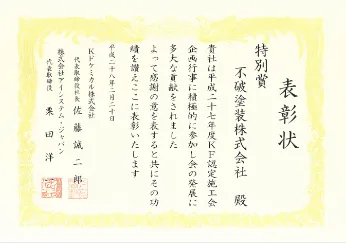 表彰状
特別賞
不破塗装株式会社 殿
貴社は平成二十七年度KF認定施工会
企画行事に積極的に参加し会の発展に
多大な貢献をされました
よって感謝の意を表すると共にその功
績を讃えここに表彰いたします
平成二十八年二月二十日
KFケミカル株式会社
代表取締役社長 佐藤誠二郎
株式会社アインシステム・ジャパン
代表取締役 栗田洋